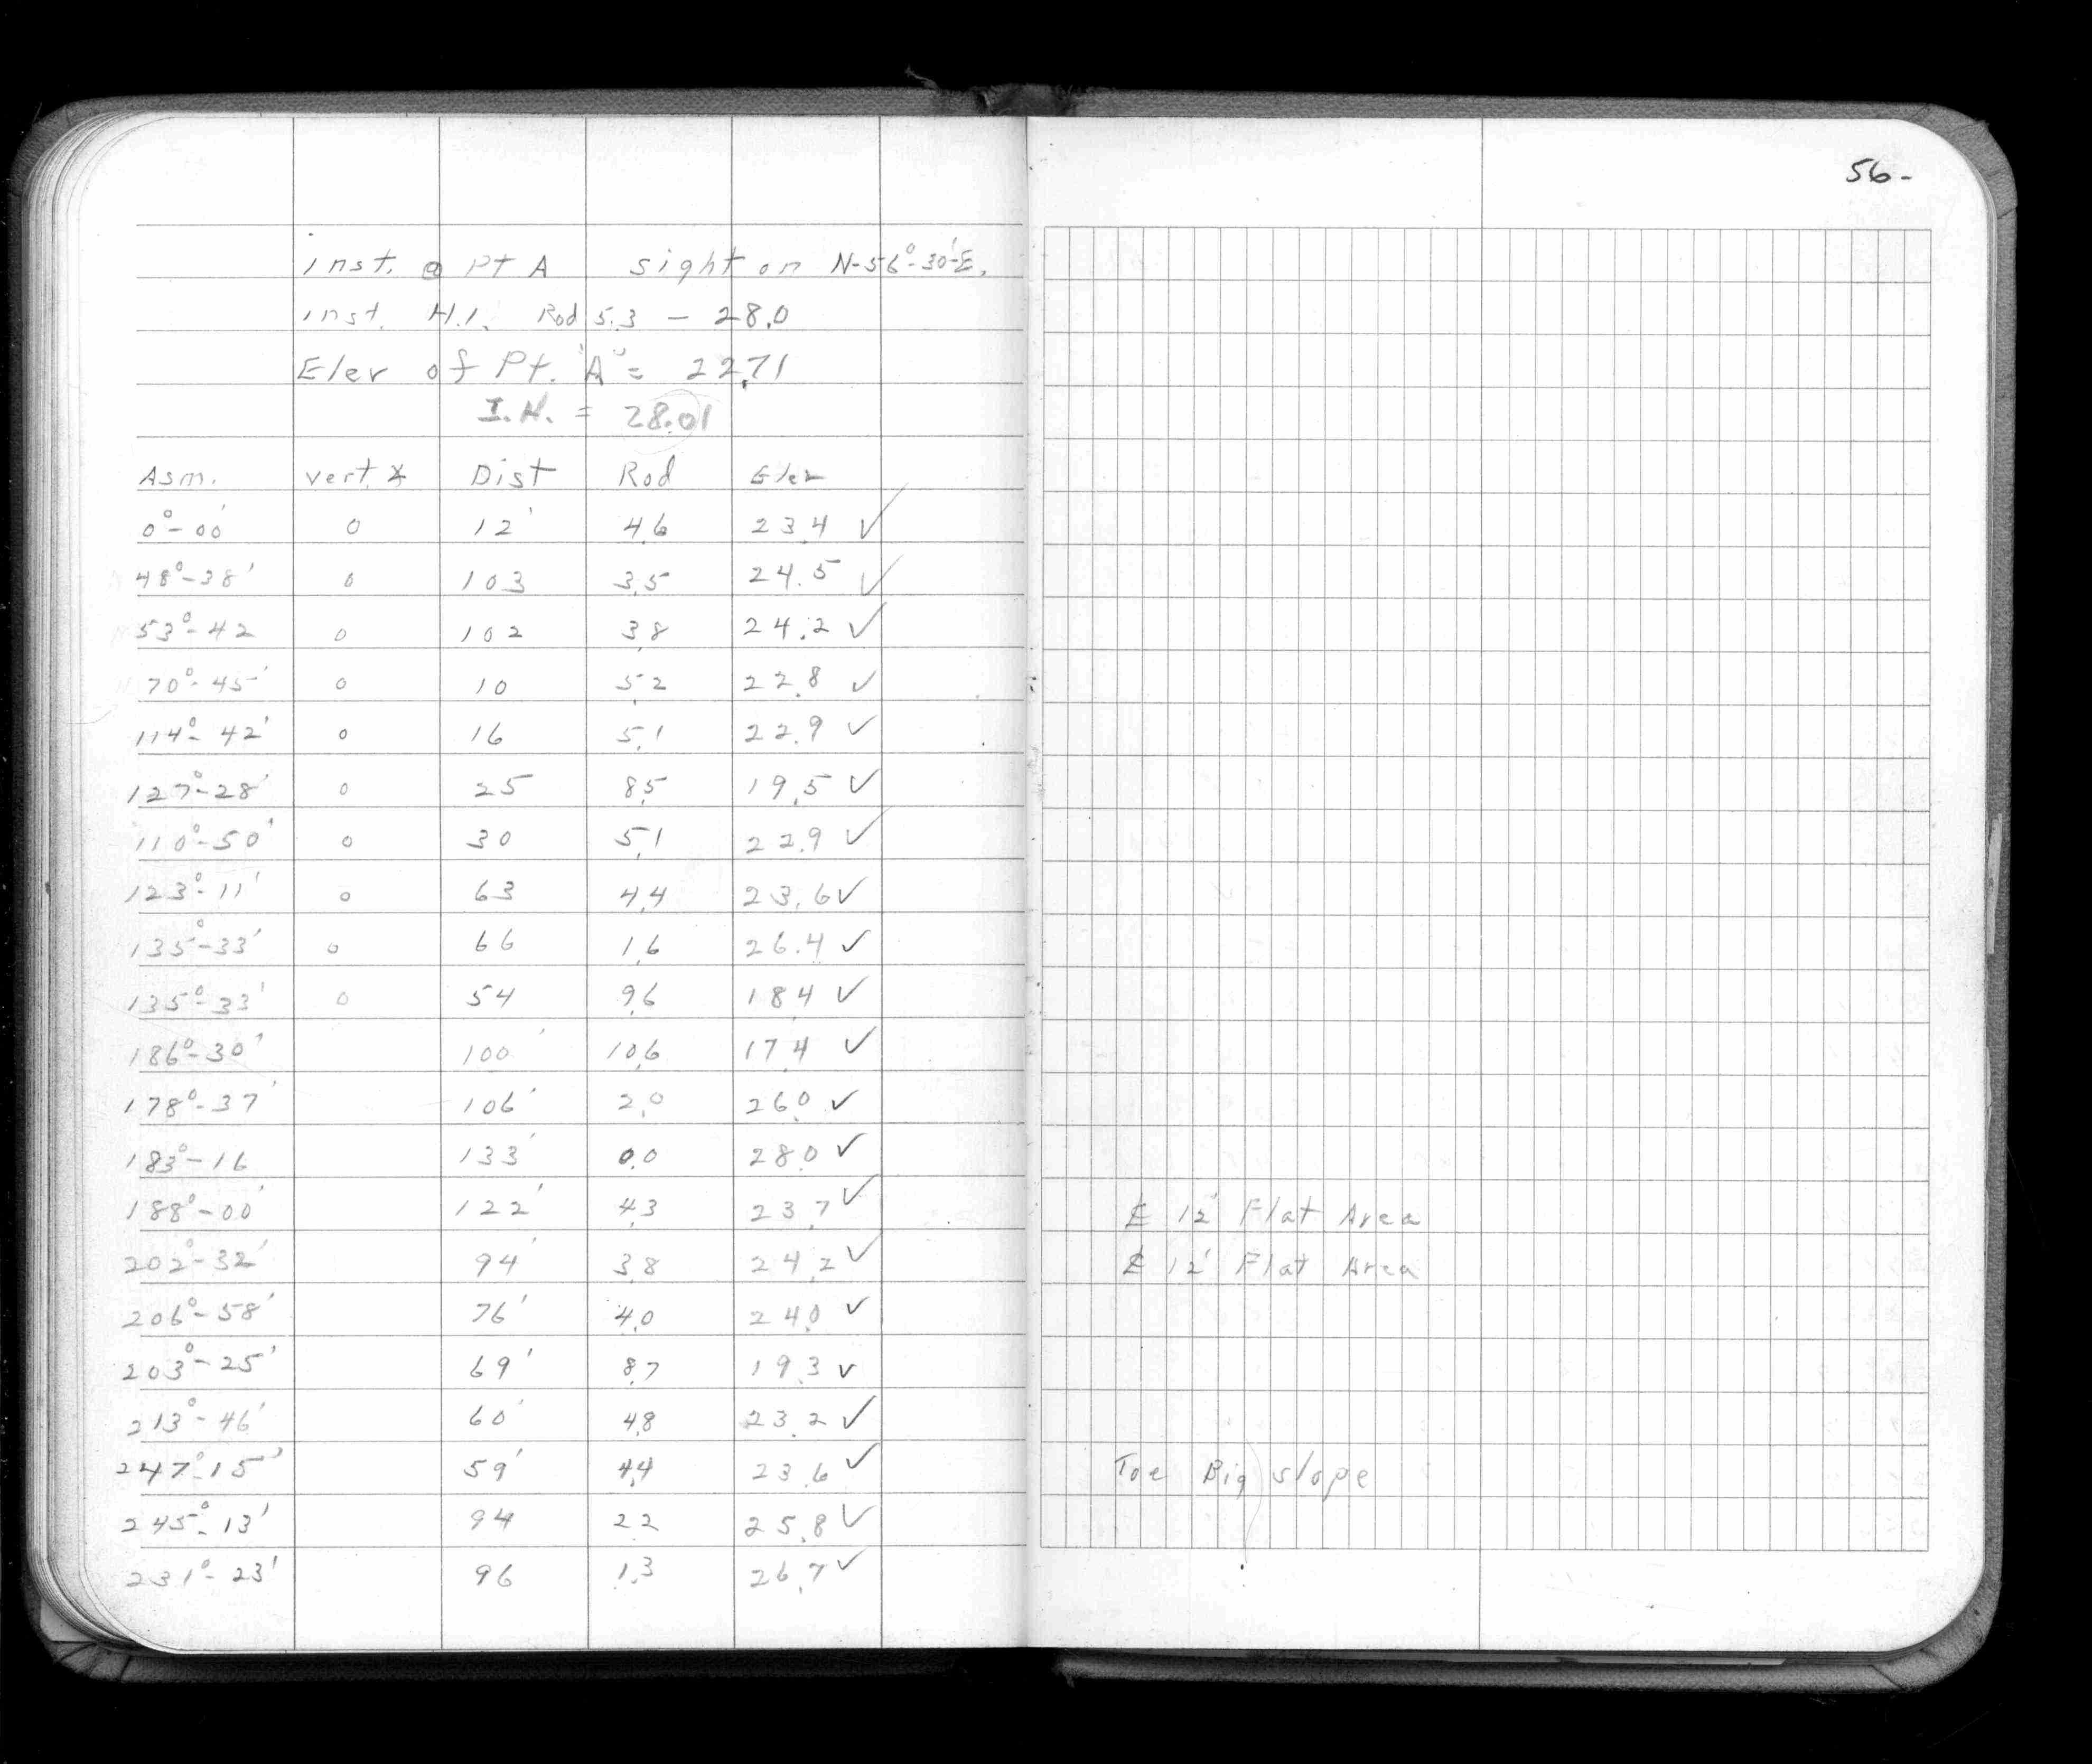 56-
Inst. @ Pt A sight on N-56°-30'-E.
Inst. H.I. Rod 5.3 - 28.0
Elev of Pt. "A" = 22.71
I.H. = 28.01
Asm. Vert. ∡ Dist Rod Elev
0°-00' 0 12' 4.6 23.4 ✓
48°-38' 0 103 3.5 24.5 ✓
53°-42 0 102 3.8 24.2 ✓
70°-45' 0 10 5.2 22.8 ✓
114°-42' 0 16 5.1 22.9 ✓
127°-28' 0 25 8.5 19.5 ✓
110°-50' 0 30 5.1 22.9 ✓
123°-11' 0 63 4.4 23.6 ✓
135°-33' 0 66 1.6 26.4 ✓
135°-33' 0 54 9.6 18.4 ✓
186°-30' 100' 10.6 17.4 ✓
178°-37' 106' 2.0 26.0 ✓
183°-16 133' 0.0 28.0 ✓
188°-00' 122' 4.3 23.7 ✓ ℄ 12' Flat Area
202°-32' 94' 3.8 24.2 ✓ ℄ 12' Flat Area
206°-58' 76' 4.0 24.0 ✓
203°-25' 69' 8.7 19.3 ✓
213°-46' 60' 4.8 23.2 ✓
247°-15' 59' 4.4 23.6 ✓ Toe Big slope
245°-13' 94 2.2 25.8 ✓
231°-23' 96 1.3 26.7 ✓